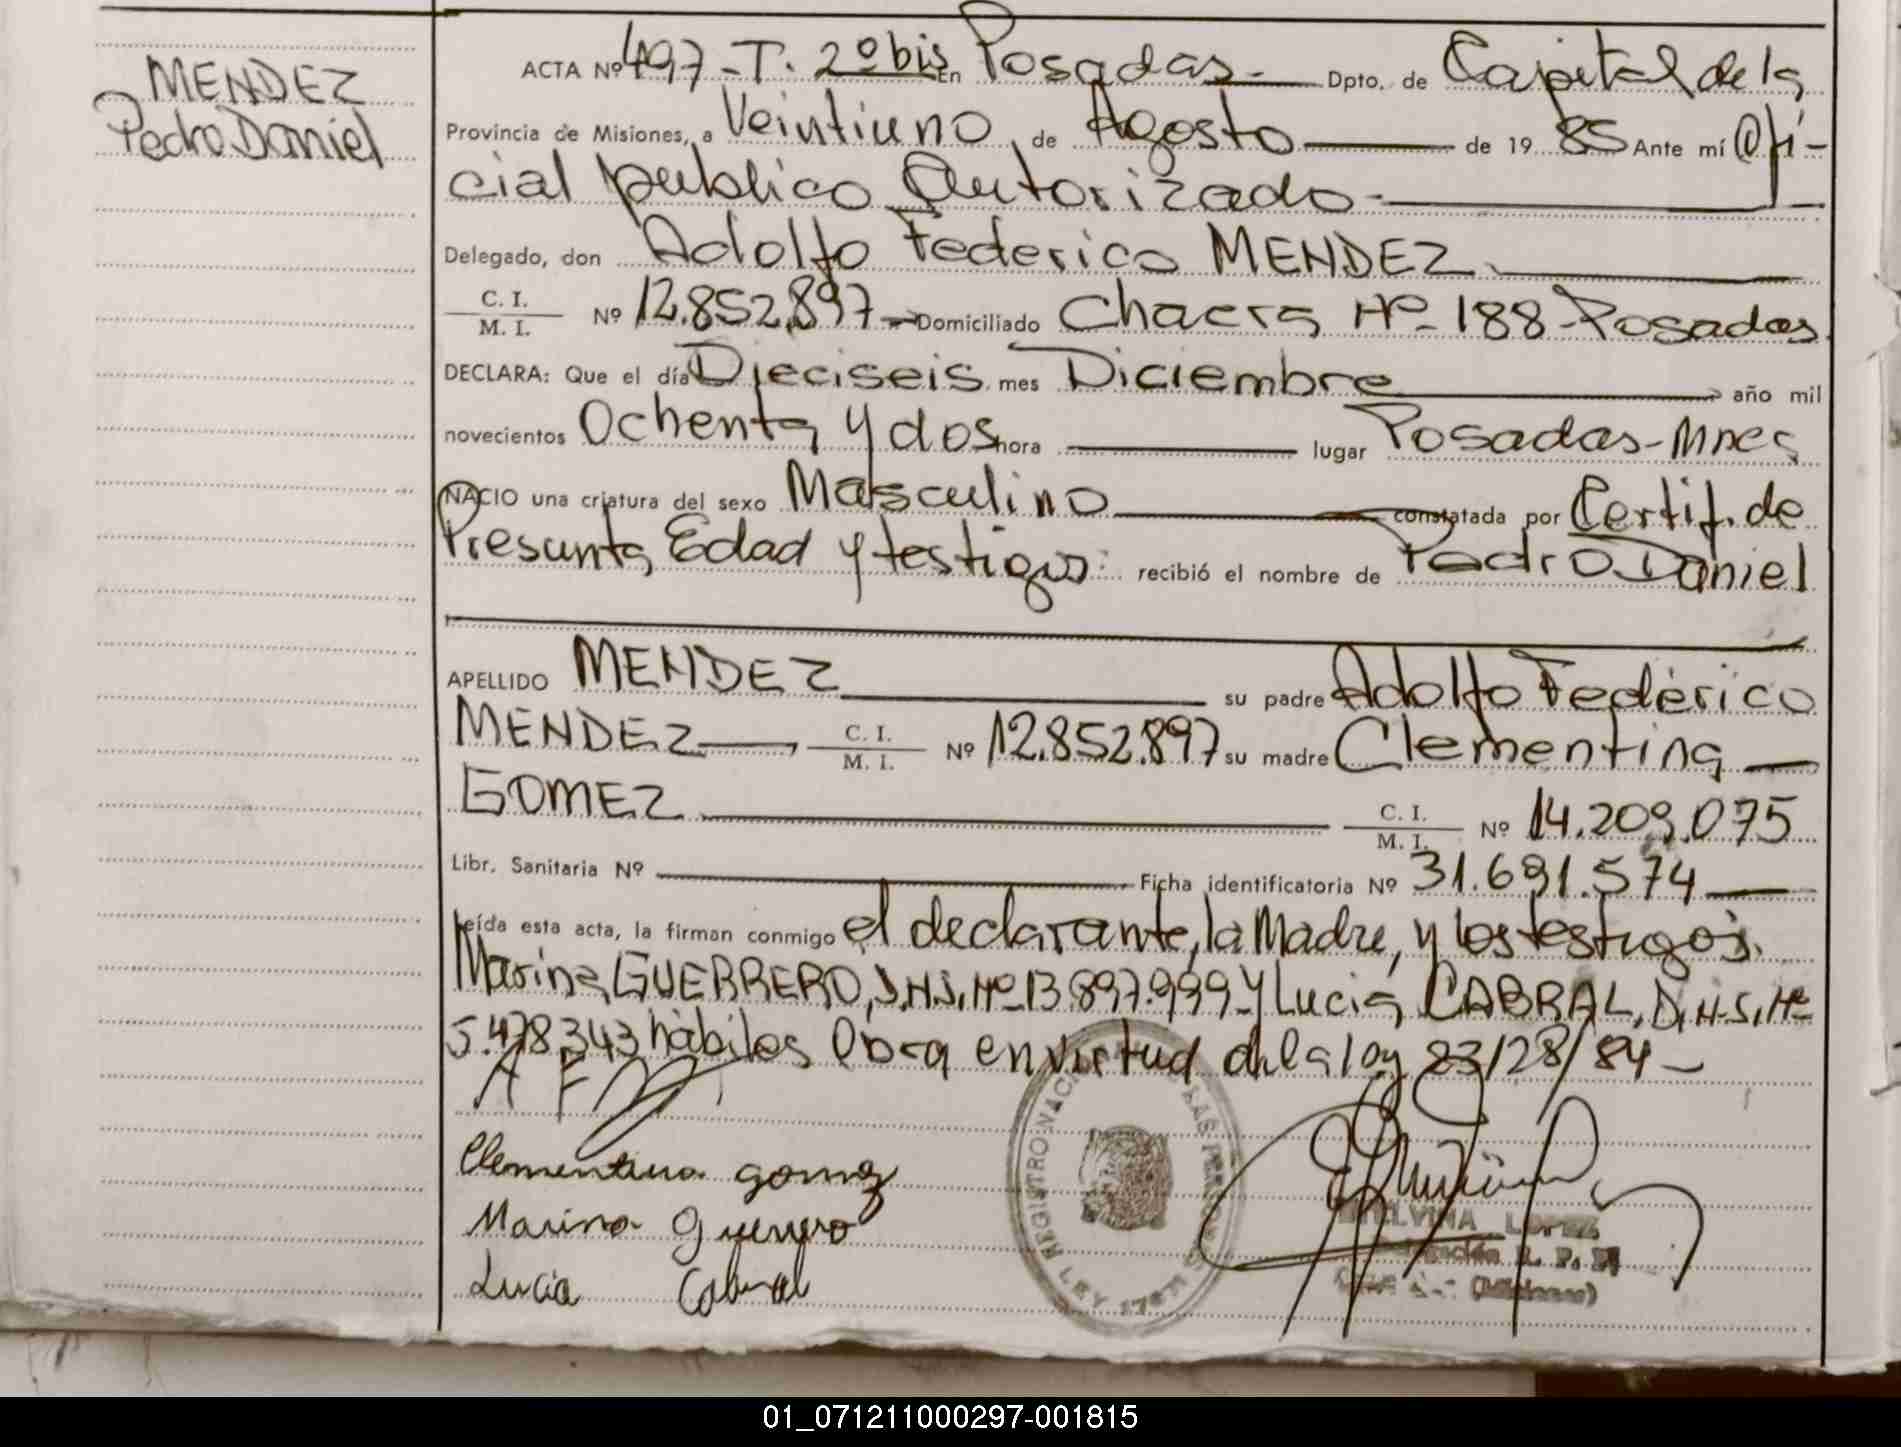 MENDEZ
Pedro Daniel
ACTA Nº 497-T. 2º bis En Posadas.- Dpto. de Capital de la
Provincia de Misiones, a Veintiuno de Agosto de 19 85 Ante mí Ofi-
cial publico Autorizado.-
Delegado, don Adolfo Federico MENDEZ.
C. I. / M. I. Nº 12.852.897.- Domiciliado Chacra Nº- 188-Posadas
DECLARA: Que el día Dieciseis mes Diciembre año mil
novecientos Ochenta y dos hora lugar Posadas-Mnes
NACIO una criatura del sexo Masculino constatada por Certif. de
Presunta Edad y testigos: recibió el nombre de Pedro Daniel
APELLIDO MENDEZ su padre Adolfo Federico
MENDEZ C. I. / M. I. Nº 12.852.897 su madre Clementina
GOMEZ C. I. / M. I. Nº 14.209.075
Libr. Sanitaria Nº Ficha identificatoria Nº 31.691.574
Leída esta acta, la firman conmigo el declarante, la Madre, y los testigos.
Marina GUERRERO, D.N.I. Nº 13.897.999 y Lucia CABRAL, D.N.I. Nº
5.478.343 hàbiles Obra en virtud de la ley 23/28/84-
A F M
Clementina gomez
Marina Guerrero
Lucia Cabral
REGISTRO NAC LAS PERSONAS
LEY
LOPEZ
R. P. P.
(Misiones)
01_071211000297-001815